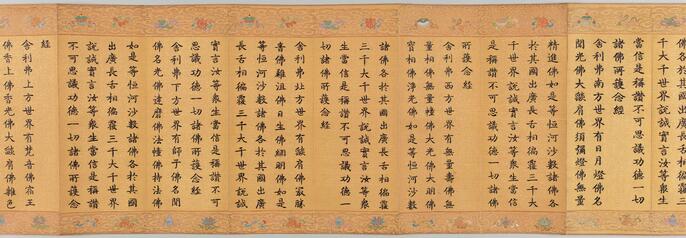 佛各於其國出廣長舌相徧覆三
千大千世界說誠實言汝等眾生
當信是稱讚不可思議功德一切
諸佛所護念經
舍利弗南方世界有日月燈佛名
聞光佛大燄肩佛須彌燈佛無量
精進佛如是等恒河沙數諸佛各
於其國出廣長舌相徧覆三千大
千世界說誠實言汝等眾生當信
是稱讚不可思議功德一切諸佛
所護念經
舍利弗西方世界有無量壽佛無
量相佛無量幢佛大光佛大明佛
寶相佛淨光佛如是等恒河沙數
諸佛各於其國出廣長舌相徧覆
三千大千世界說誠實言汝等眾
生當信是稱讚不可思議功德一
切諸佛所護念經
舍利弗北方世界有燄肩佛最勝
音佛難沮佛日生佛網明佛如是
等恒河沙數諸佛各於其國出廣
長舌相徧覆三千大千世界說誠
實言汝等眾生當信是稱讚不可
思議功德一切諸佛所護念經
舍利弗下方世界有師子佛名聞
佛名光佛達磨佛法幢佛持法佛
如是等恒河沙數諸佛各於其國
出廣長舌相徧覆三千大千世界
說誠實言汝等眾生當信是稱讚
不可思議功德一切諸佛所護念
經
舍利弗上方世界有梵音佛宿王
佛香上佛香光佛大燄肩佛雜色